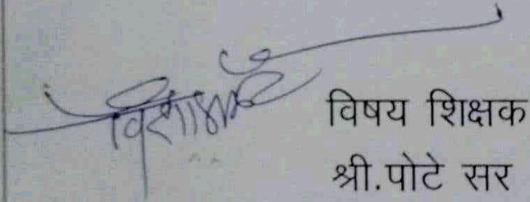 विषय शिक्षक
श्री.पोटे सर